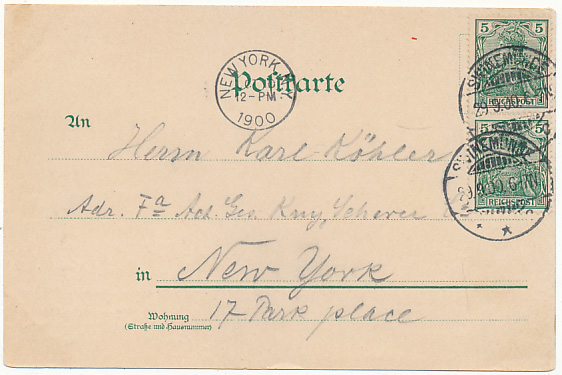 5 5
SWINEMÜNDE
29.5.00
REICHSPOST
NEW YORK, N.Y.
12-PM
1900
Postkarte
5 5
SWINEMÜNDE
REICHSPOST
An
Herrn Karl Köhler
Adr. Fa Act. Ges Kny, Scherer
in New York
17 Park place
Wohnung
(Straße und Hausnummer)